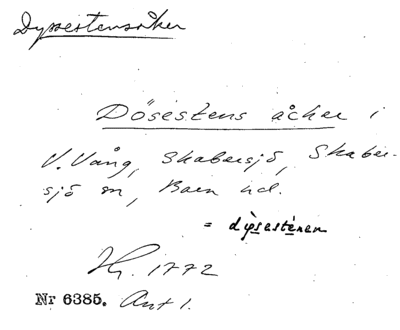 Dyssestensåker
Dösestens åcker i
V. Vång, Skabersjö, Skaber-
sjö sn, Bara hd.
= dỳsestènen
Hy. 1772
Nr 6385. Ant 1.